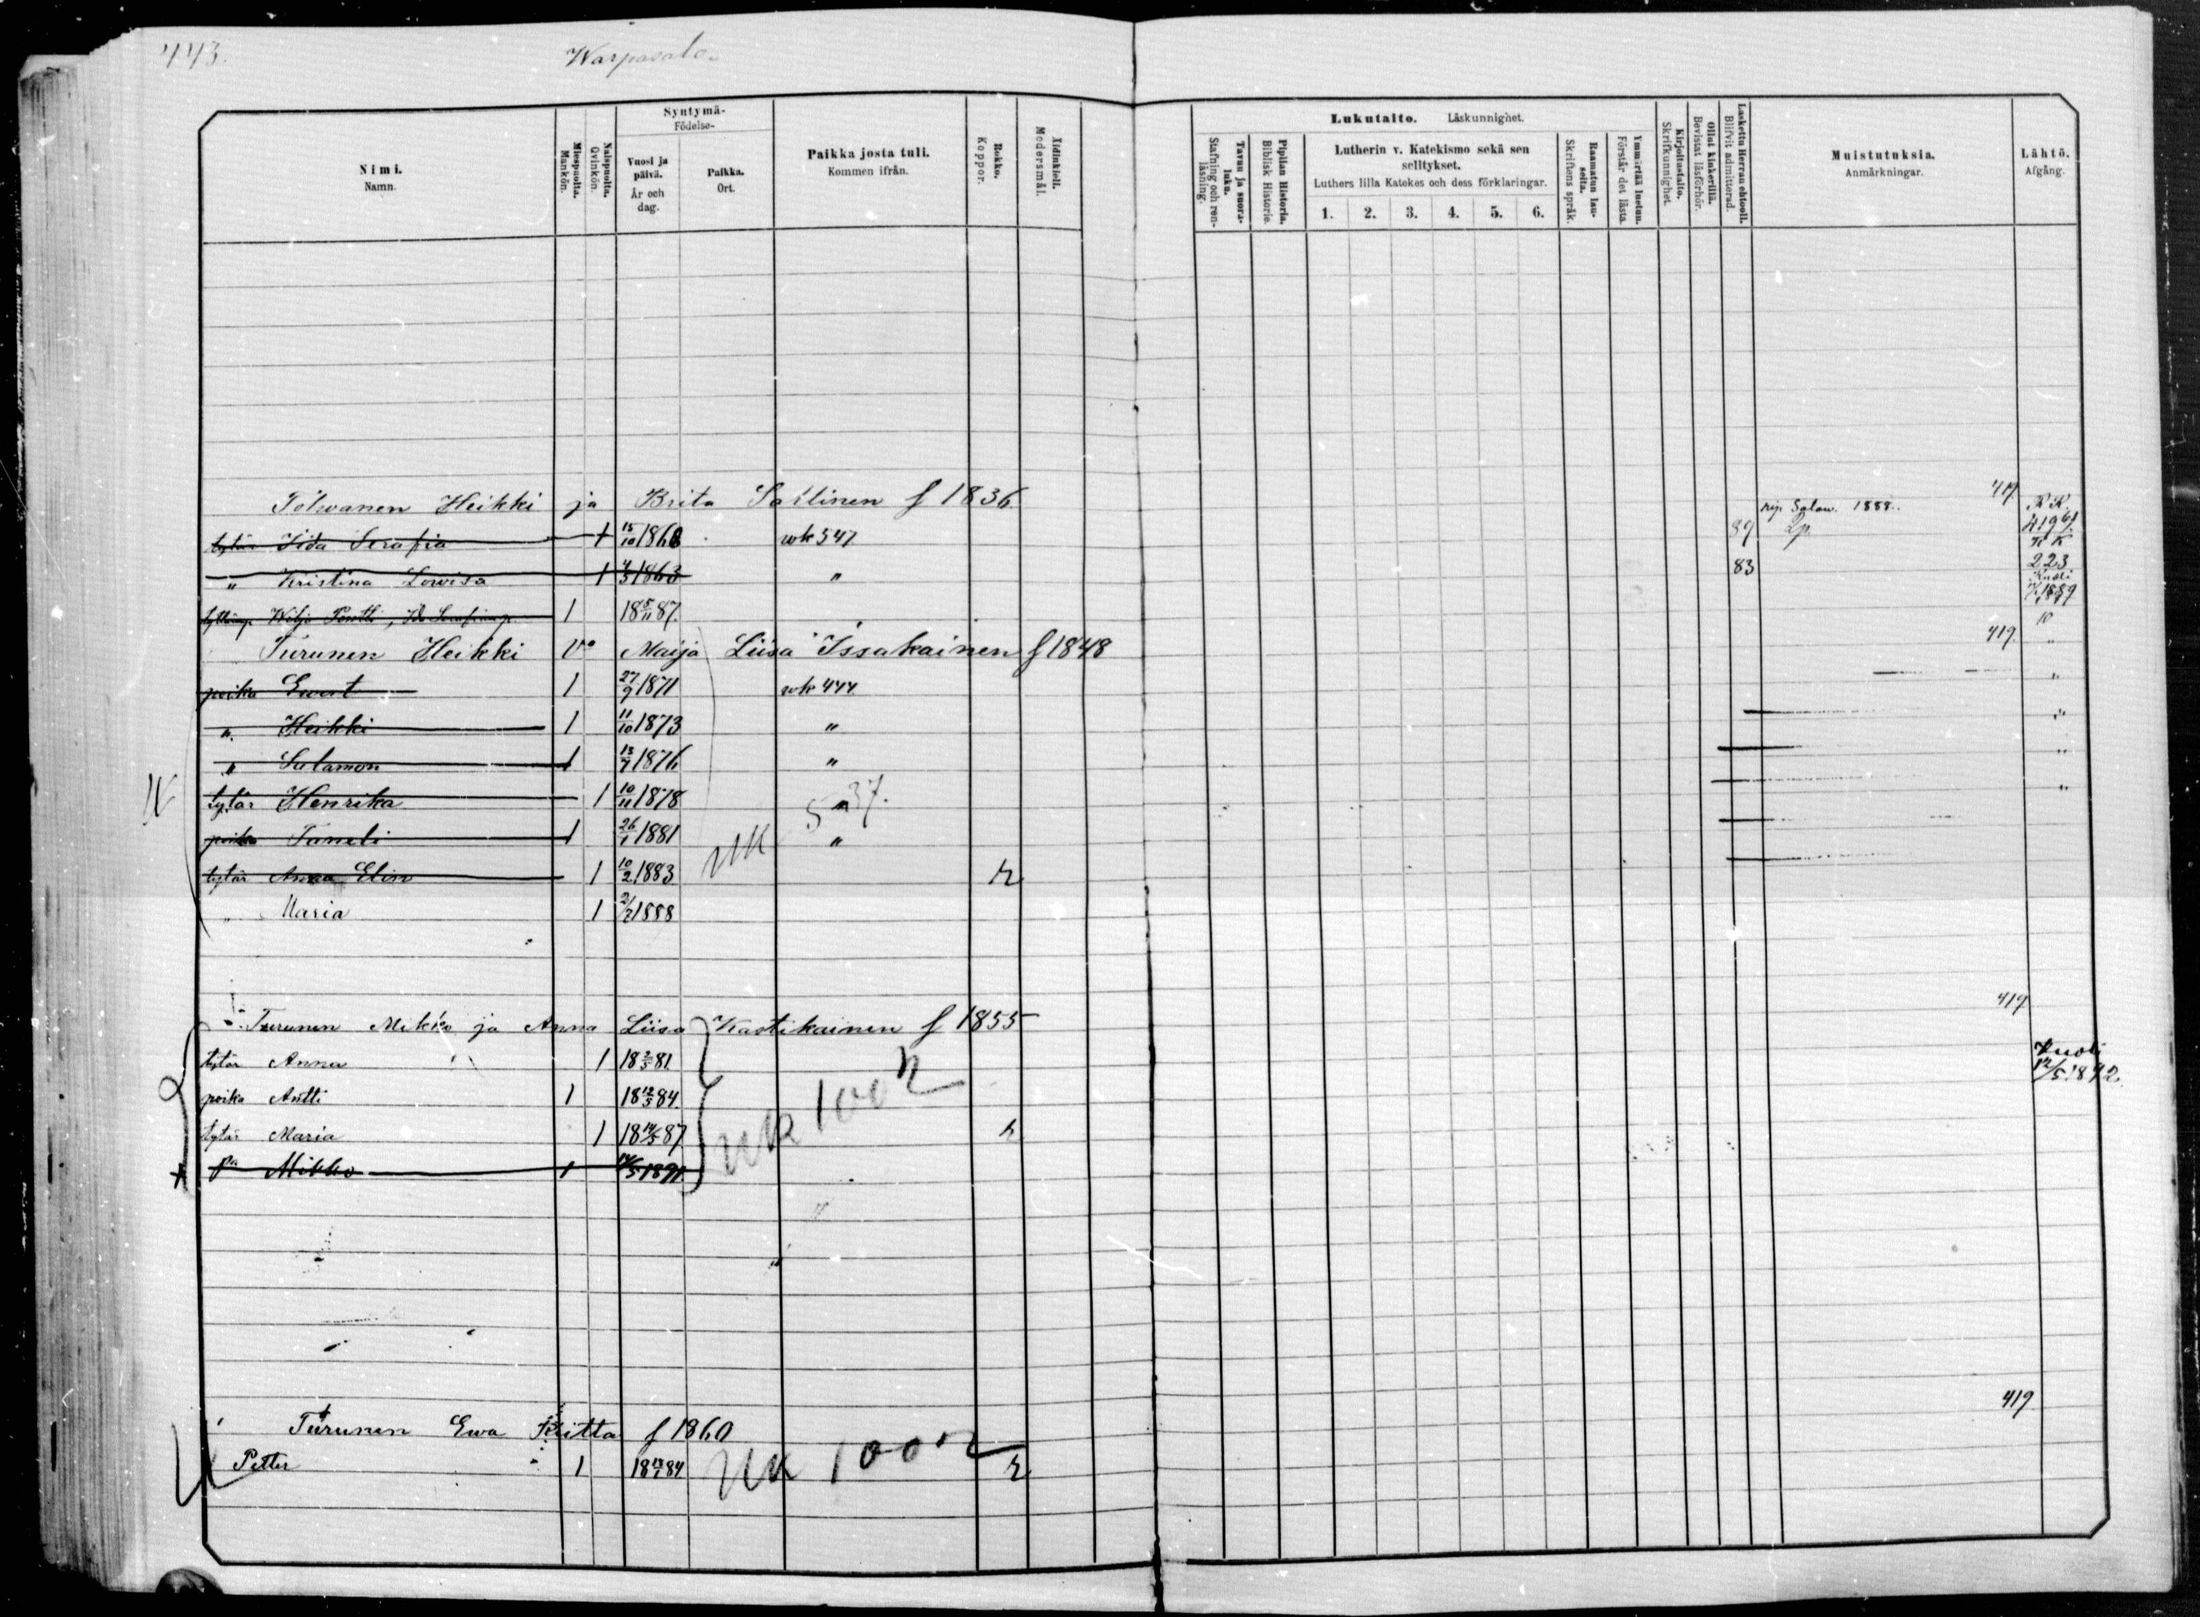 443.
Warpasalo.
Nimi.
Namn.
Miespuolta.
Mankön.
Naispuolta.
Qvinkön.
Syntymä-
Födelse-
Vuosi ja päivä.
År och dag.
Paikka.
Ort.
Paikka josta tuli.
Kommen ifrån.
Rokko.
Koppor.
Äidinkieli.
Modersmål.
Lukutaito. Läskunnighet.
Tavuu ja suora-luku.
Stafning och ren-läsning.
Piplian Historia.
Biblisk Historie.
Lutherin v. Katekismo sekä sen selitykset.
Luthers lilla Katekes och dess förklaringar.
1. 2. 3. 4. 5. 6.
Raamatun lau-seita.
Skriftens språk.
Ymmärtää luetun.
Förstår det lästa.
Kirjoitustaito.
Skrifkunnighet.
Ollut kinkerillä.
Bevistat läsförhör.
Laskettu Herran ehtooll.
Blifvit admitterad.
Muistutuksia.
Anmärkningar.
Lähtö.
Afgång.
Tolwanen Heikki ja Brita Sartinen f 1836 419
tytär Iida Serafia 1 15/10 1860 wk 547 89 rip. Salaw. 1888. Lp. KK 1961
" Kristina Lowisa 1 1863 " 83 KK 223
Wiljo Pentti, 1 18 5/11 87. 1889
Turunen Heikki Vo Maija Liisa Issakainen f 1848 419. "
poika Ewert 1 27/9 1871 wk 444 "
" Heikki 1 11/10 1873 " "
" Salamon 1 13/7 1876 " "
tytär Henrika 1 10/11 1878 " 537. "
poika Taneli 1 26/1 1881 "
tytär Anna Elin 1 10/2 1883 UK r
" Maria 1 2/7 1888
419
Turunen Mikko ja Anna Liisa Kastikainen f 1855
tytär Anna 1 18 2/5 81. Kuoli 12/5 1892.
poika Antti 1 18 12/5 84. UK 1002
tytär Maria 1 18 14/5 87 r
pa Mikko 1 14/5 1891
419
Turunen Ewa Britta f 1860
Petter 1 18 84 UK 1002 r